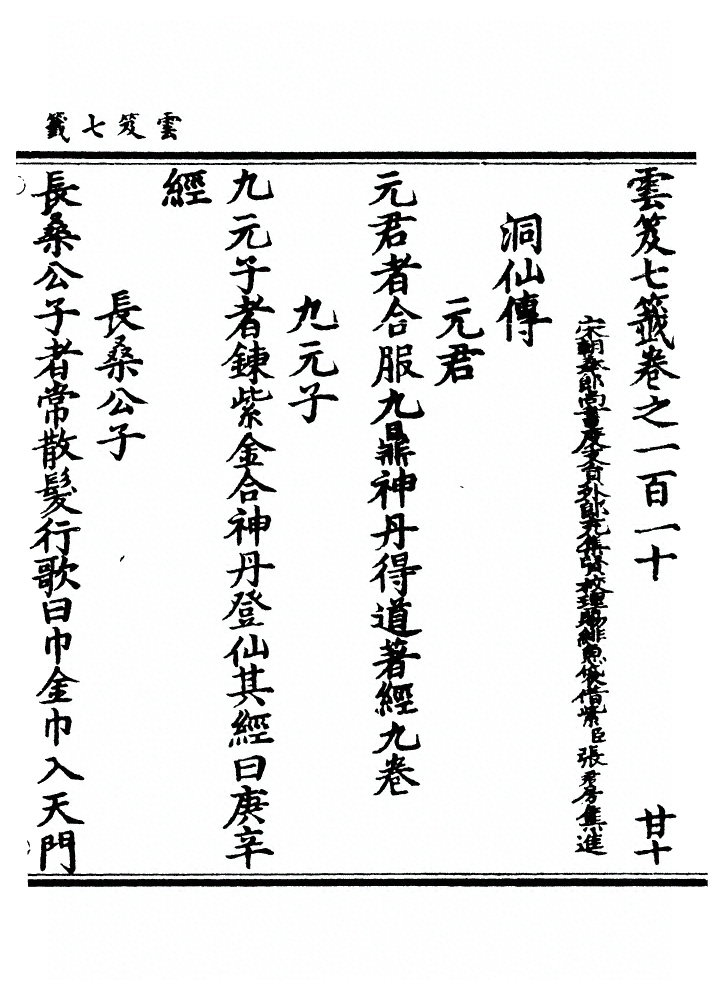 雲笈七籤
雲笈七籤卷之一百一十
甘十
宋朝奉郎尚書度支員外郎充集賢校理賜緋魚袋借紫臣張君房集進
洞仙傳
元君
元君者合服九鼎神丹得道著經九卷
九元子
九元子者鍊紫金合神丹登仙其經曰庚辛
經
長桑公子
長桑公子者常散髮行歌曰巾金巾入天門